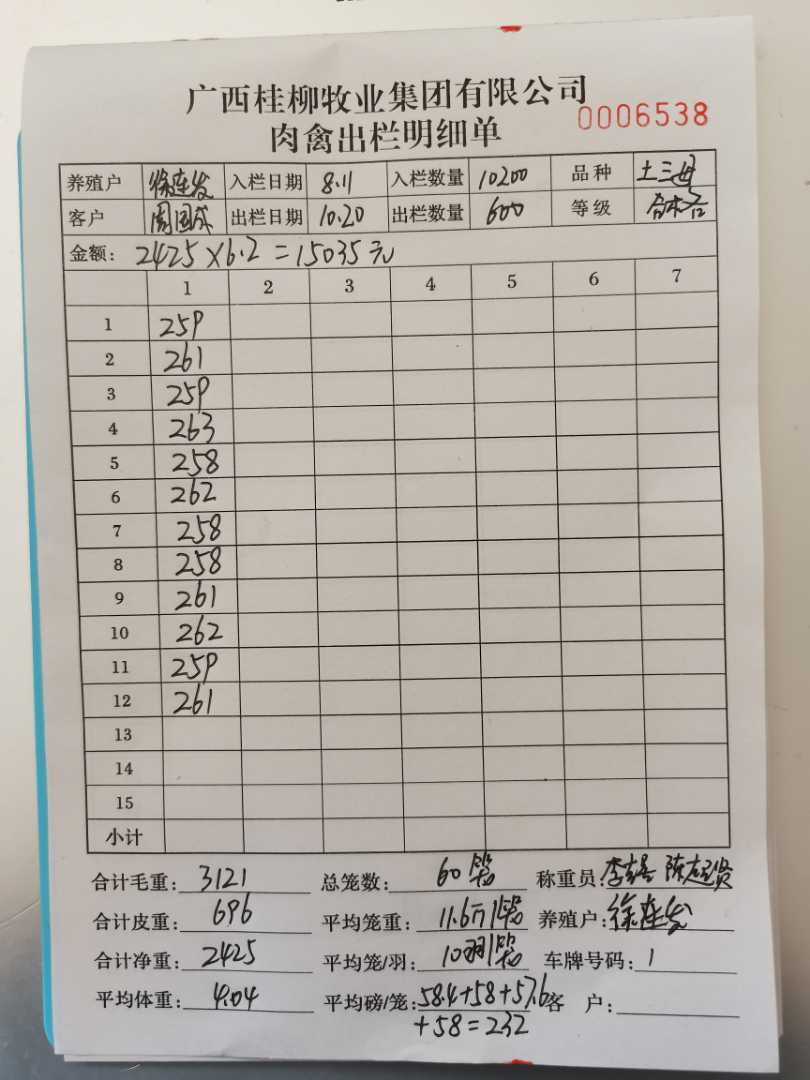 广西桂柳牧业集团有限公司
肉禽出栏明细单 0006538
养殖户 徐连发 入栏日期 8.11 入栏数量 10200 品种 土三
客户 周国成 出栏日期 10.20 出栏数量 600 等级 合格
金额: 2425×6.2=15035元
1 2 3 4 5 6 7
1 259
2 261
3 259
4 263
5 258
6 262
7 258
8 258
9 261
10 262
11 259
12 261
13
14
15
小计
合计毛重: 3121 总笼数: 60笼 称重员:
合计皮重: 696 平均笼重: 11.6斤/笼 养殖户: 徐连发
合计净重: 2425 平均笼/羽: 10羽/笼 车牌号码: 1
平均体重: 4.04 平均磅/笼: 58.4+58+57.6 客 户:
+58=232